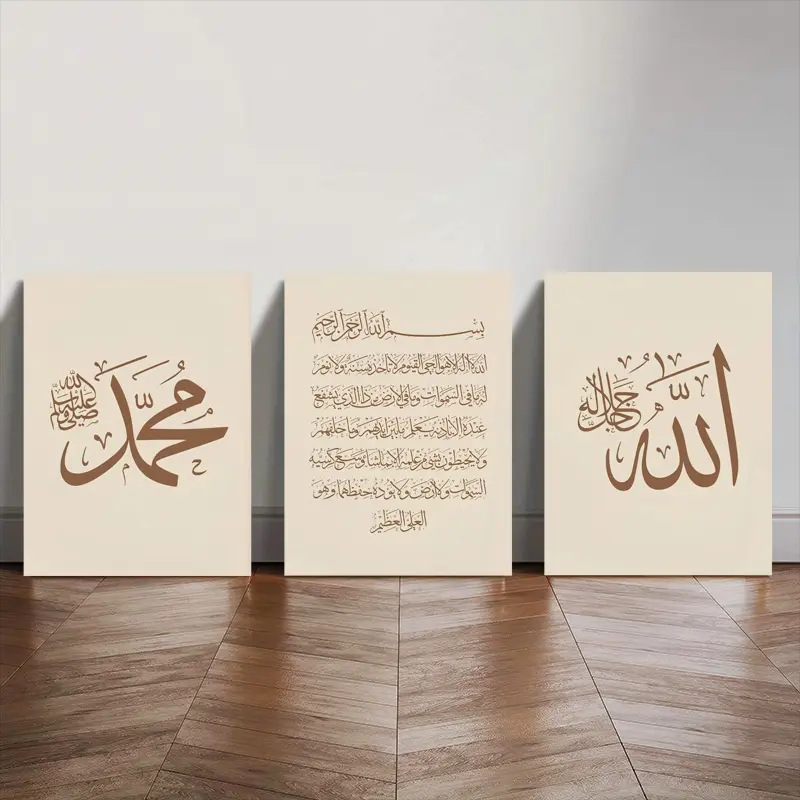 الله
جل جلاله
بسم الله الرحمن الرحيم
الله لا اله الا هو الحي القيوم لا تاخذه سنة ولا نوم
له ما في السموات وما في الارض من ذا الذي يشفع
عنده الا باذنه يعلم ما بين ايديهم وما خلفهم
ولا يحيطون بشيء من علمه الا بما شاء وسع كرسيه
السموات والارض ولا يؤده حفظهما وهو
العلي العظيم
محمد
صلى الله عليه وسلم